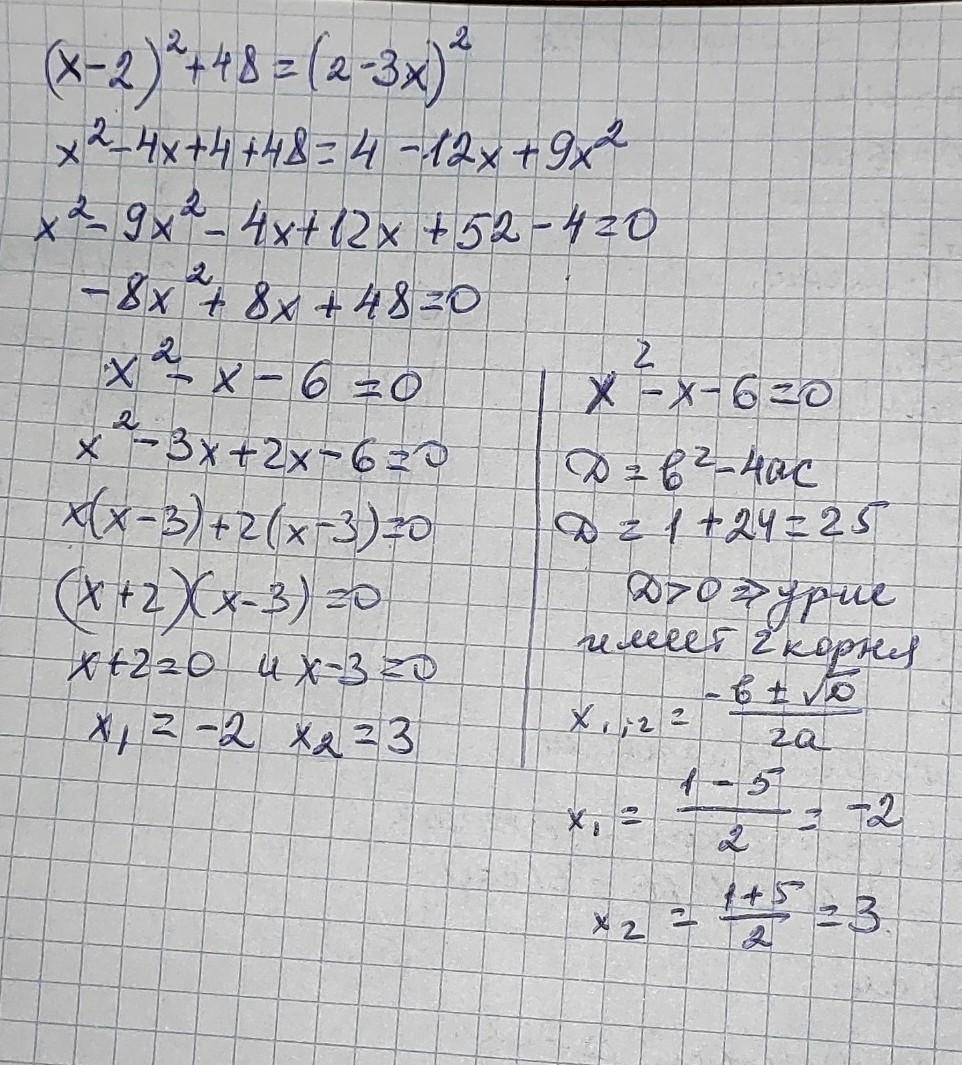 (x-2)²+48=(2-3x)²
x²-4x+4+48=4-12x+9x²
x²-9x²-4x+12x+52-4=0
-8x²+8x+48=0
x²-x-6=0
x²-3x+2x-6=0
x(x-3)+2(x-3)=0
(x+2)(x-3)=0
x+2=0 и x-3=0
x₁=-2 x₂=3
x²-x-6=0
D=b²-4ac
D=1+24=25
D>0⇒ур-ие
имеет 2 корня
x₁,₂=(-b±√D)/2a
x₁=(1-5)/2=-2
x₂=(1+5)/2=3